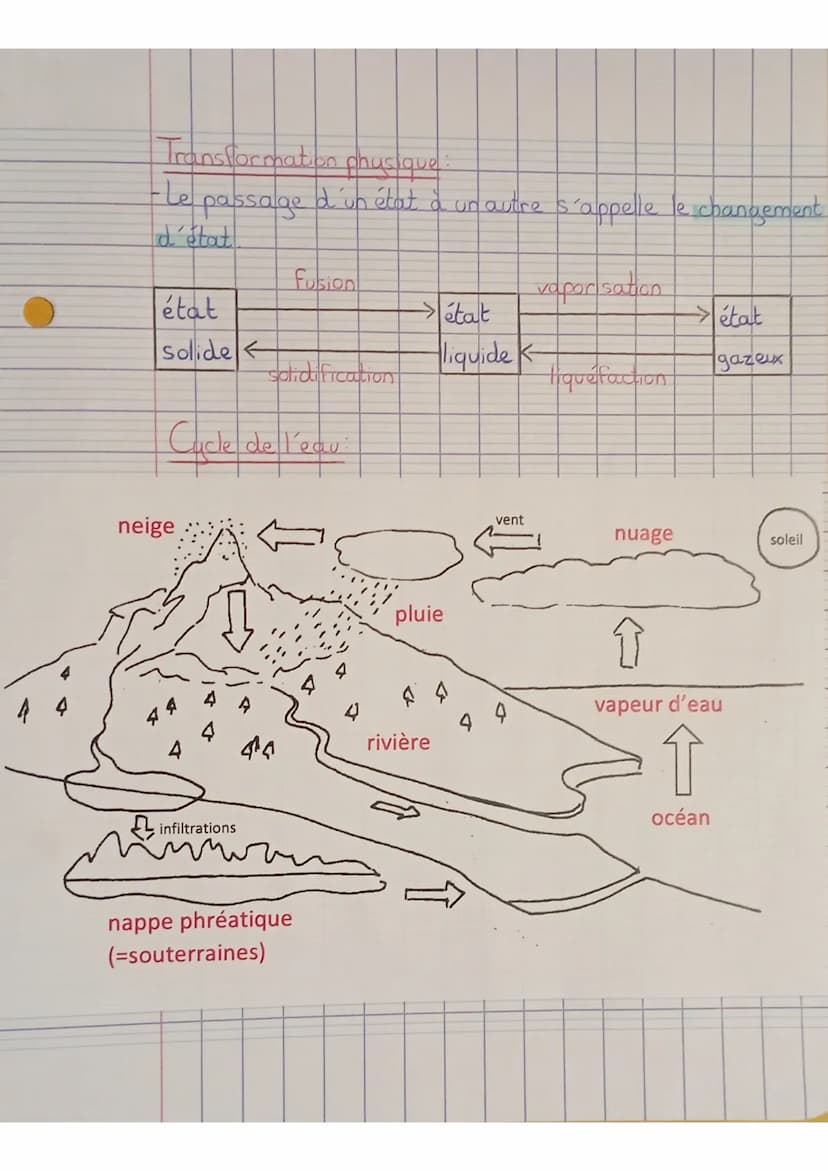 Transformation physique :
- Le passage d'un état à un autre s'appelle le changement
d'état.
fusion
vaporisation
état
solide
état
liquide
état
gazeux
solidification
liquéfaction
Cycle de l'eau :
neige
vent
nuage
soleil
pluie
vapeur d'eau
rivière
océan
infiltrations
nappe phréatique
(=souterraines)